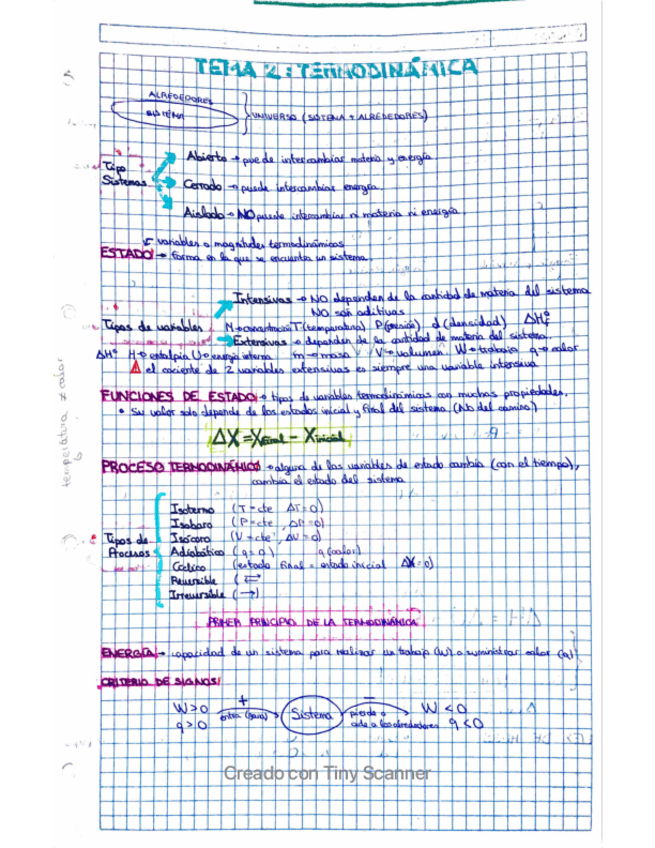 TEMA 2: TERMODINÁMICA
ALREDEDORES
SISTEMA
UNIVERSO (SISTEMA + ALREDEDORES)
Tipo Sistemas
Abierto → puede intercambiar materia y energía.
Cerrado → puede intercambiar energía.
Aislado → NO puede intercambiar ni materia ni energía.
variables o magnitudes termodinámicas
ESTADO → forma en la que se encuentra un sistema.
Tipos de variables
Intensivas → NO dependen de la cantidad de materia del sistema
NO son aditivas
T (temperatura) P (presión) d (densidad)
Extensivas → dependen de la cantidad de materia del sistema.
ΔHº H → entalpía U → energía interna m → masa V → volumen W → trabajo q → calor
el cociente de 2 variables extensivas es siempre una variable intensiva
temperatura ≠ calor
FUNCIONES DE ESTADO → tipos de variables termodinámicas con muchas propiedades.
• Su valor solo depende de los estados inicial y final del sistema (No del camino)
ΔX = Xfinal - Xinicial
PROCESO TERMODINÁMICO → alguna de las variables de estado cambia (con el tiempo),
cambia el estado del sistema
Tipos de Procesos
Isotermo (T = cte ΔT = 0)
Isobaro (P = cte, ΔP = 0)
Isócoro (V = cte, ΔV = 0)
Adiabático (q = 0) q (calor)
Cíclico (estado final = estado inicial ΔX = 0)
Reversible (⇄
Irreversible (→)
PRIMER PRINCIPIO DE LA TERMODINÁMICA
ENERGÍA → capacidad de un sistema para realizar un trabajo (W) o suministrar calor (q)
CRITERIO DE SIGNOS
W > 0
q > 0
+
entra (gana)
Sistema
−
pierde o
cede a los alrededores
W < 0
q < 0
Creado con Tiny Scanner